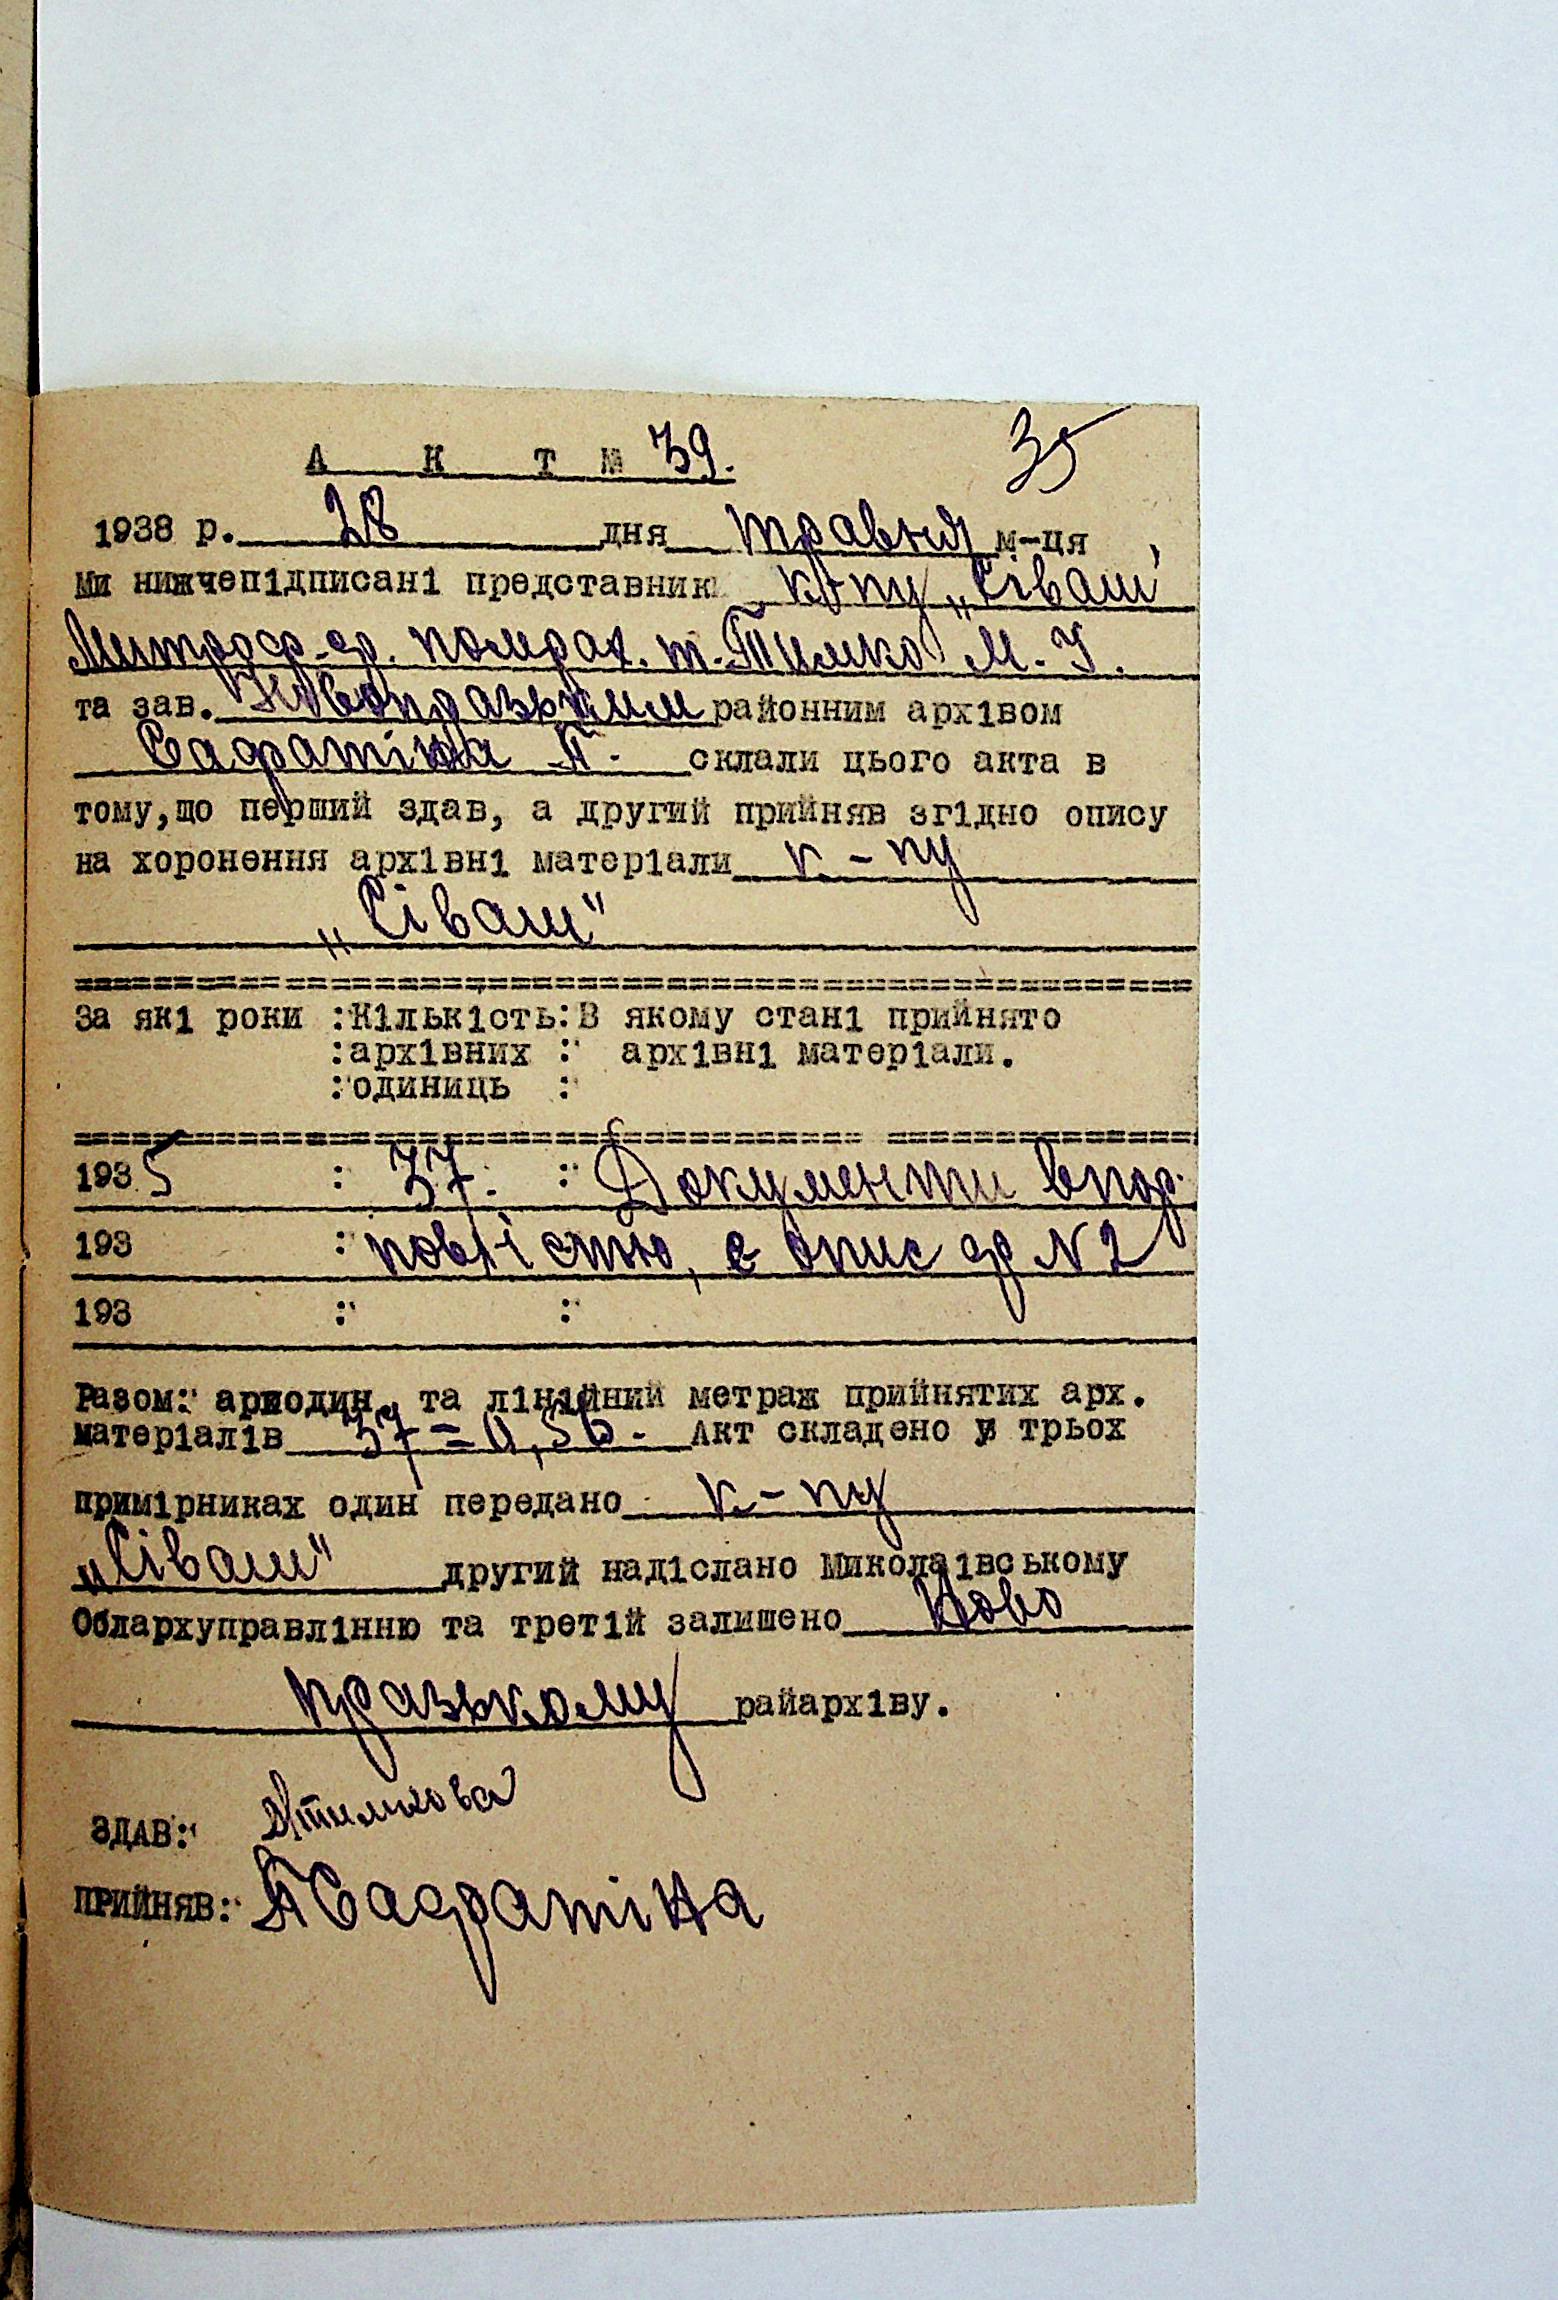 А К Т № 39.
35
1938 р. 28 дня травня м-ця
ми нижчепідписані представник к-пу „Сіваш"
помрах. т. Тимко М. І.
та зав. Новопразьким районним архівом
Сафатіна склали цього акта в
тому,що перший здав, а другий прийняв згідно опису
на хоронення архівні матеріали к-пу
„Сіваш"
За які роки :Кількість:В якому стані прийнято
:архівних : архівні матеріали.
:одиниць :
1935 : 37. : Документи впор.
193 : повністю, є опис ф № 2
193 : :
Разом: арходин, та лінійний метраж прийнятих арх.
матеріалів 37 = 0,56. Акт складено у трьох
примірниках один передано к-пу
„Сіваш" другий надіслано Миколаївському
Облархуправлінню та третій залишено Ново
празькому райархіву.
ЗДАВ:
ПРИЙНЯВ: Сафатіна